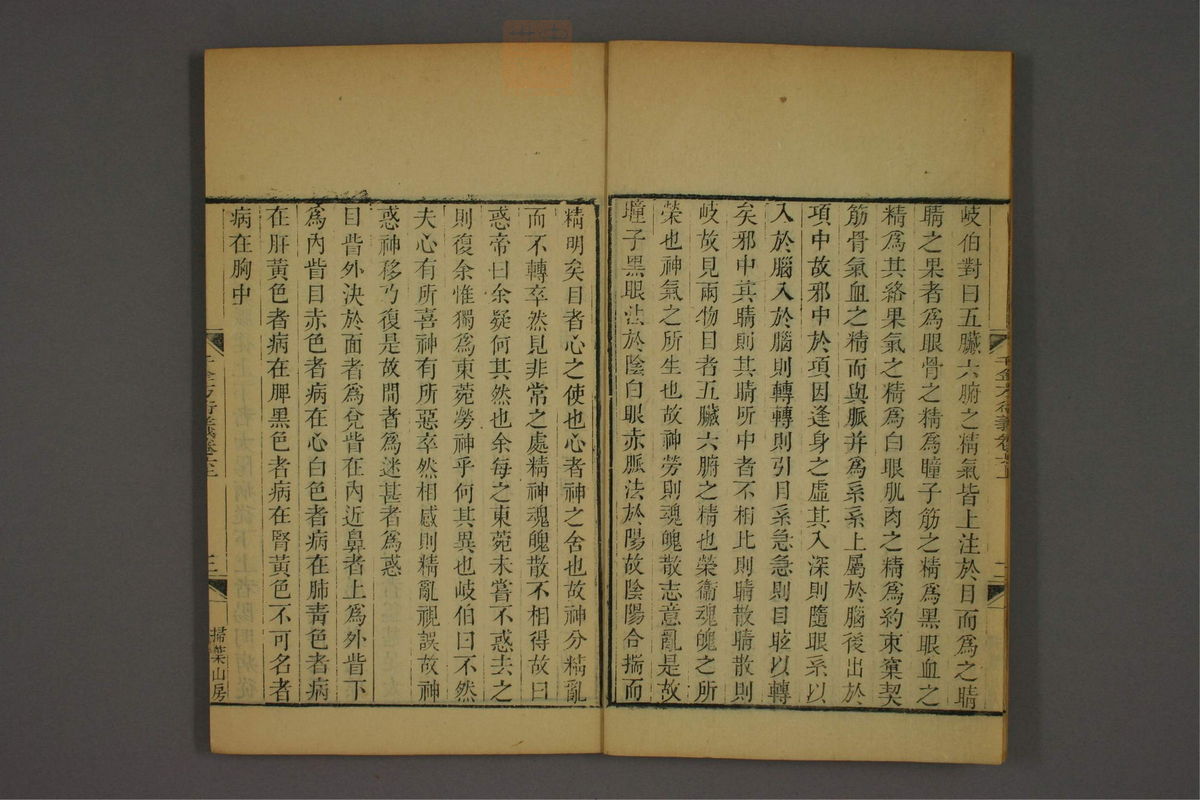 岐伯對曰五臟六腑之精氣皆上注於目而為之睛
睛之果者為眼骨之精為瞳子筋之精為黑眼血之
精為其絡果氣之精為白眼肌肉之精為約束窠契
筋骨氣血之精而與脈并為系系上屬於腦後出於
項中故邪中於項因逢身之虛其入深則隨眼系以
入於腦入於腦則轉轉則引目系急急則目眩以轉
矣邪中其睛則其睛所中者不相比則睛散睛散則
岐故見兩物目者五臟六腑之精也榮衛魂魄之所
榮也神氣之所生也故神勞則魂魄散志意亂是故
瞳子黑眼法於陰白眼赤脈法於陽故陰陽合揣而
精明矣目者心之使也心者神之舍也故神分精亂
而不轉卒然見非常之處精神魂魄散不相得故曰
惑帝曰余疑何其然也余每之東菀未嘗不惑去之
則復余惟獨為東菀勞神乎何其異也岐伯曰不然
夫心有所喜神有所惡卒然相感則精亂視誤故神
惑神移乃復是故間者為迷甚者為惑
目眥外決於面者為兌眥在內近鼻者上為外眥下
為內眥目赤色者病在心白色者病在肺靑色者病
在肝黃色者病在脾黑色者病在腎黃色不可名者
病在胸中
千金方衍義卷六上
三
掃葉山房